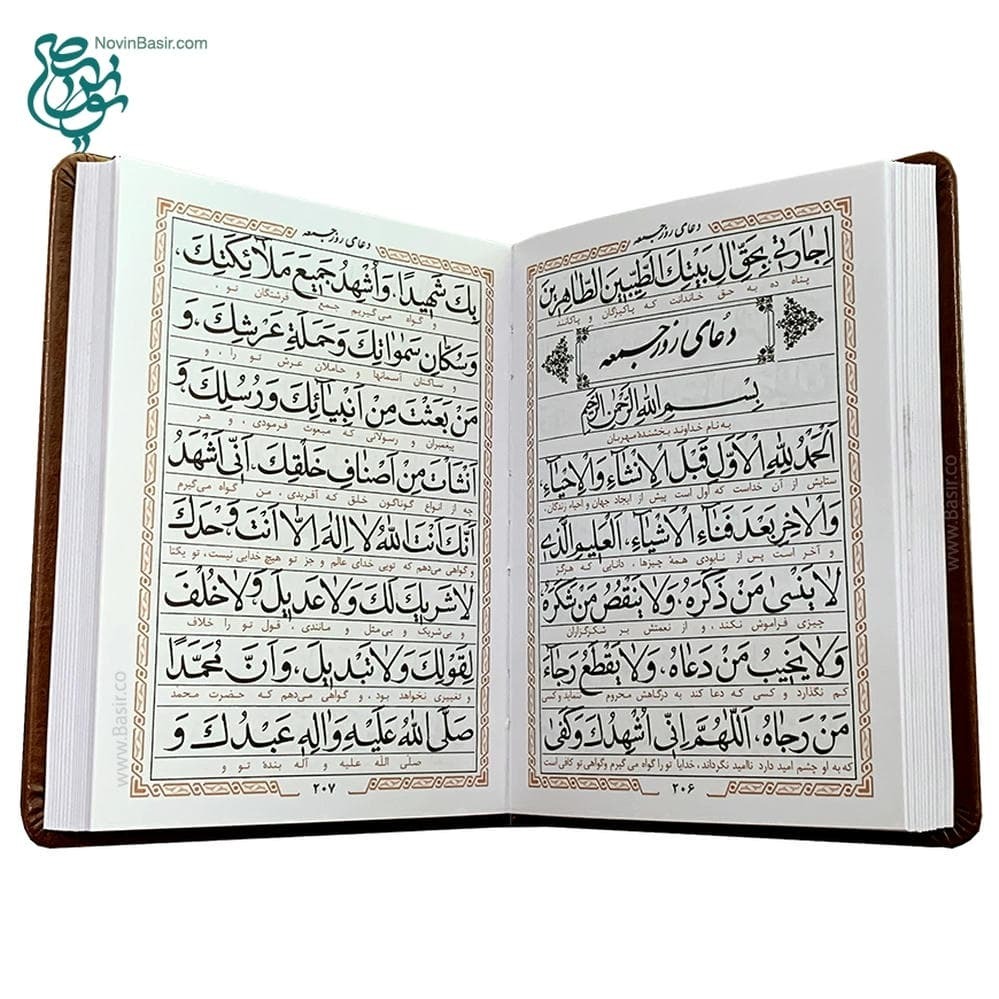 NovinBasir.com
دعای روز جمعه
اِجارَتي بِحَقِّ الِ بَيْتِكَ الطَّيِّبينَ الطّاهِرينَ
پناه ده به حق خاندانت که پاکیزگان و پاکانند
دعای روز جمعه
بِسْمِ اللهِ الرَّحْمنِ الرَّحيمِ
به نام خداوند بخشندهٔ مهربان
اَلْحَمْدُ لِلّٰهِ الْاَوَّلِ قَبْلَ الْاِنْشاءِ وَالْاِحْياءِ،
ستایش از آن خداست که اول است پیش از ایجاد جهان و احیاء زندگان.
وَالْاخِرِ بَعْدَ فَناءِ الْاَشْياءِ، الْعَليمِ الَّذي
و آخر است پس از نابودی همهٔ چیزها، دانایی که هرگز
لا يَنْسٰى مَنْ ذَكَرَهُ، وَلا يَنْقُصُ مَنْ شَكَرَهُ
چیزی فراموش نکند، و از نعمتش بر شکرگزاران
وَلا يَخيبُ مَنْ دَعاهُ، وَلا يَقْطَعُ رَجاءَ
کم نگذارد و کسی که دعا کند به درگاهش محروم ننماید و کسی
مَنْ رَجاهُ، اَللّٰهُمَّ اِنّي اُشْهِدُكَ وَكَفٰى
که به او چشم امید دارد ناامید نگرداند، خدایا تو را گواه می گیرم وگواهی تو کافی است
۲۰۶
دعای روز جمعه
بِكَ شَهيدًا، وَاُشْهِدُ جَميعَ مَلائِكَتِكَ،
و گواه می‌گیریم جمیع فرشتگان تو،
وَسُكّانِ سَمٰواتِكَ وَحَمَلَةِ عَرْشِكَ، وَ
و ساکنان آسمانها و حاملان عرش تو را، و
مَنْ بَعَثْتَ مِنْ اَنْبِيائِكَ وَرُسُلِكَ، وَ
پیغمبران و رسولانی که مبعوث فرمودی، و هر
اَنْشَأْتَ مِنْ اَصْنافِ خَلْقِكَ، اَنّي اَشْهَدُ
چه از انواع گوناگون خلق که آفریدی، من گواه می‌گیرم
اَنَّكَ اَنْتَ اللهُ لا اِلٰهَ اِلّا اَنْتَ، وَحْدَكَ
و گواهی می‌دهم که تویی خدای عالم و جز تو هیچ خدایی نیست، تو یکتا
لا شَريكَ لَكَ وَلا عَديلَ، وَلا خُلْفَ
و بی‌شریک و بی‌مثل و مانندی، قول تو را خلاف
لِقَوْلِكَ وَلا تَبْديلَ، وَاَنَّ مُحَمَّدًا
و تغییری نخواهد بود، و گواهی می‌دهم که حضرت محمد
صَلَّى اللهُ عَلَيْهِ وَالِهِ عَبْدُكَ وَ
صلی الله علیه و آله بندهٔ تو و
۲۰۷
www.Basir.co
www.Basir.co